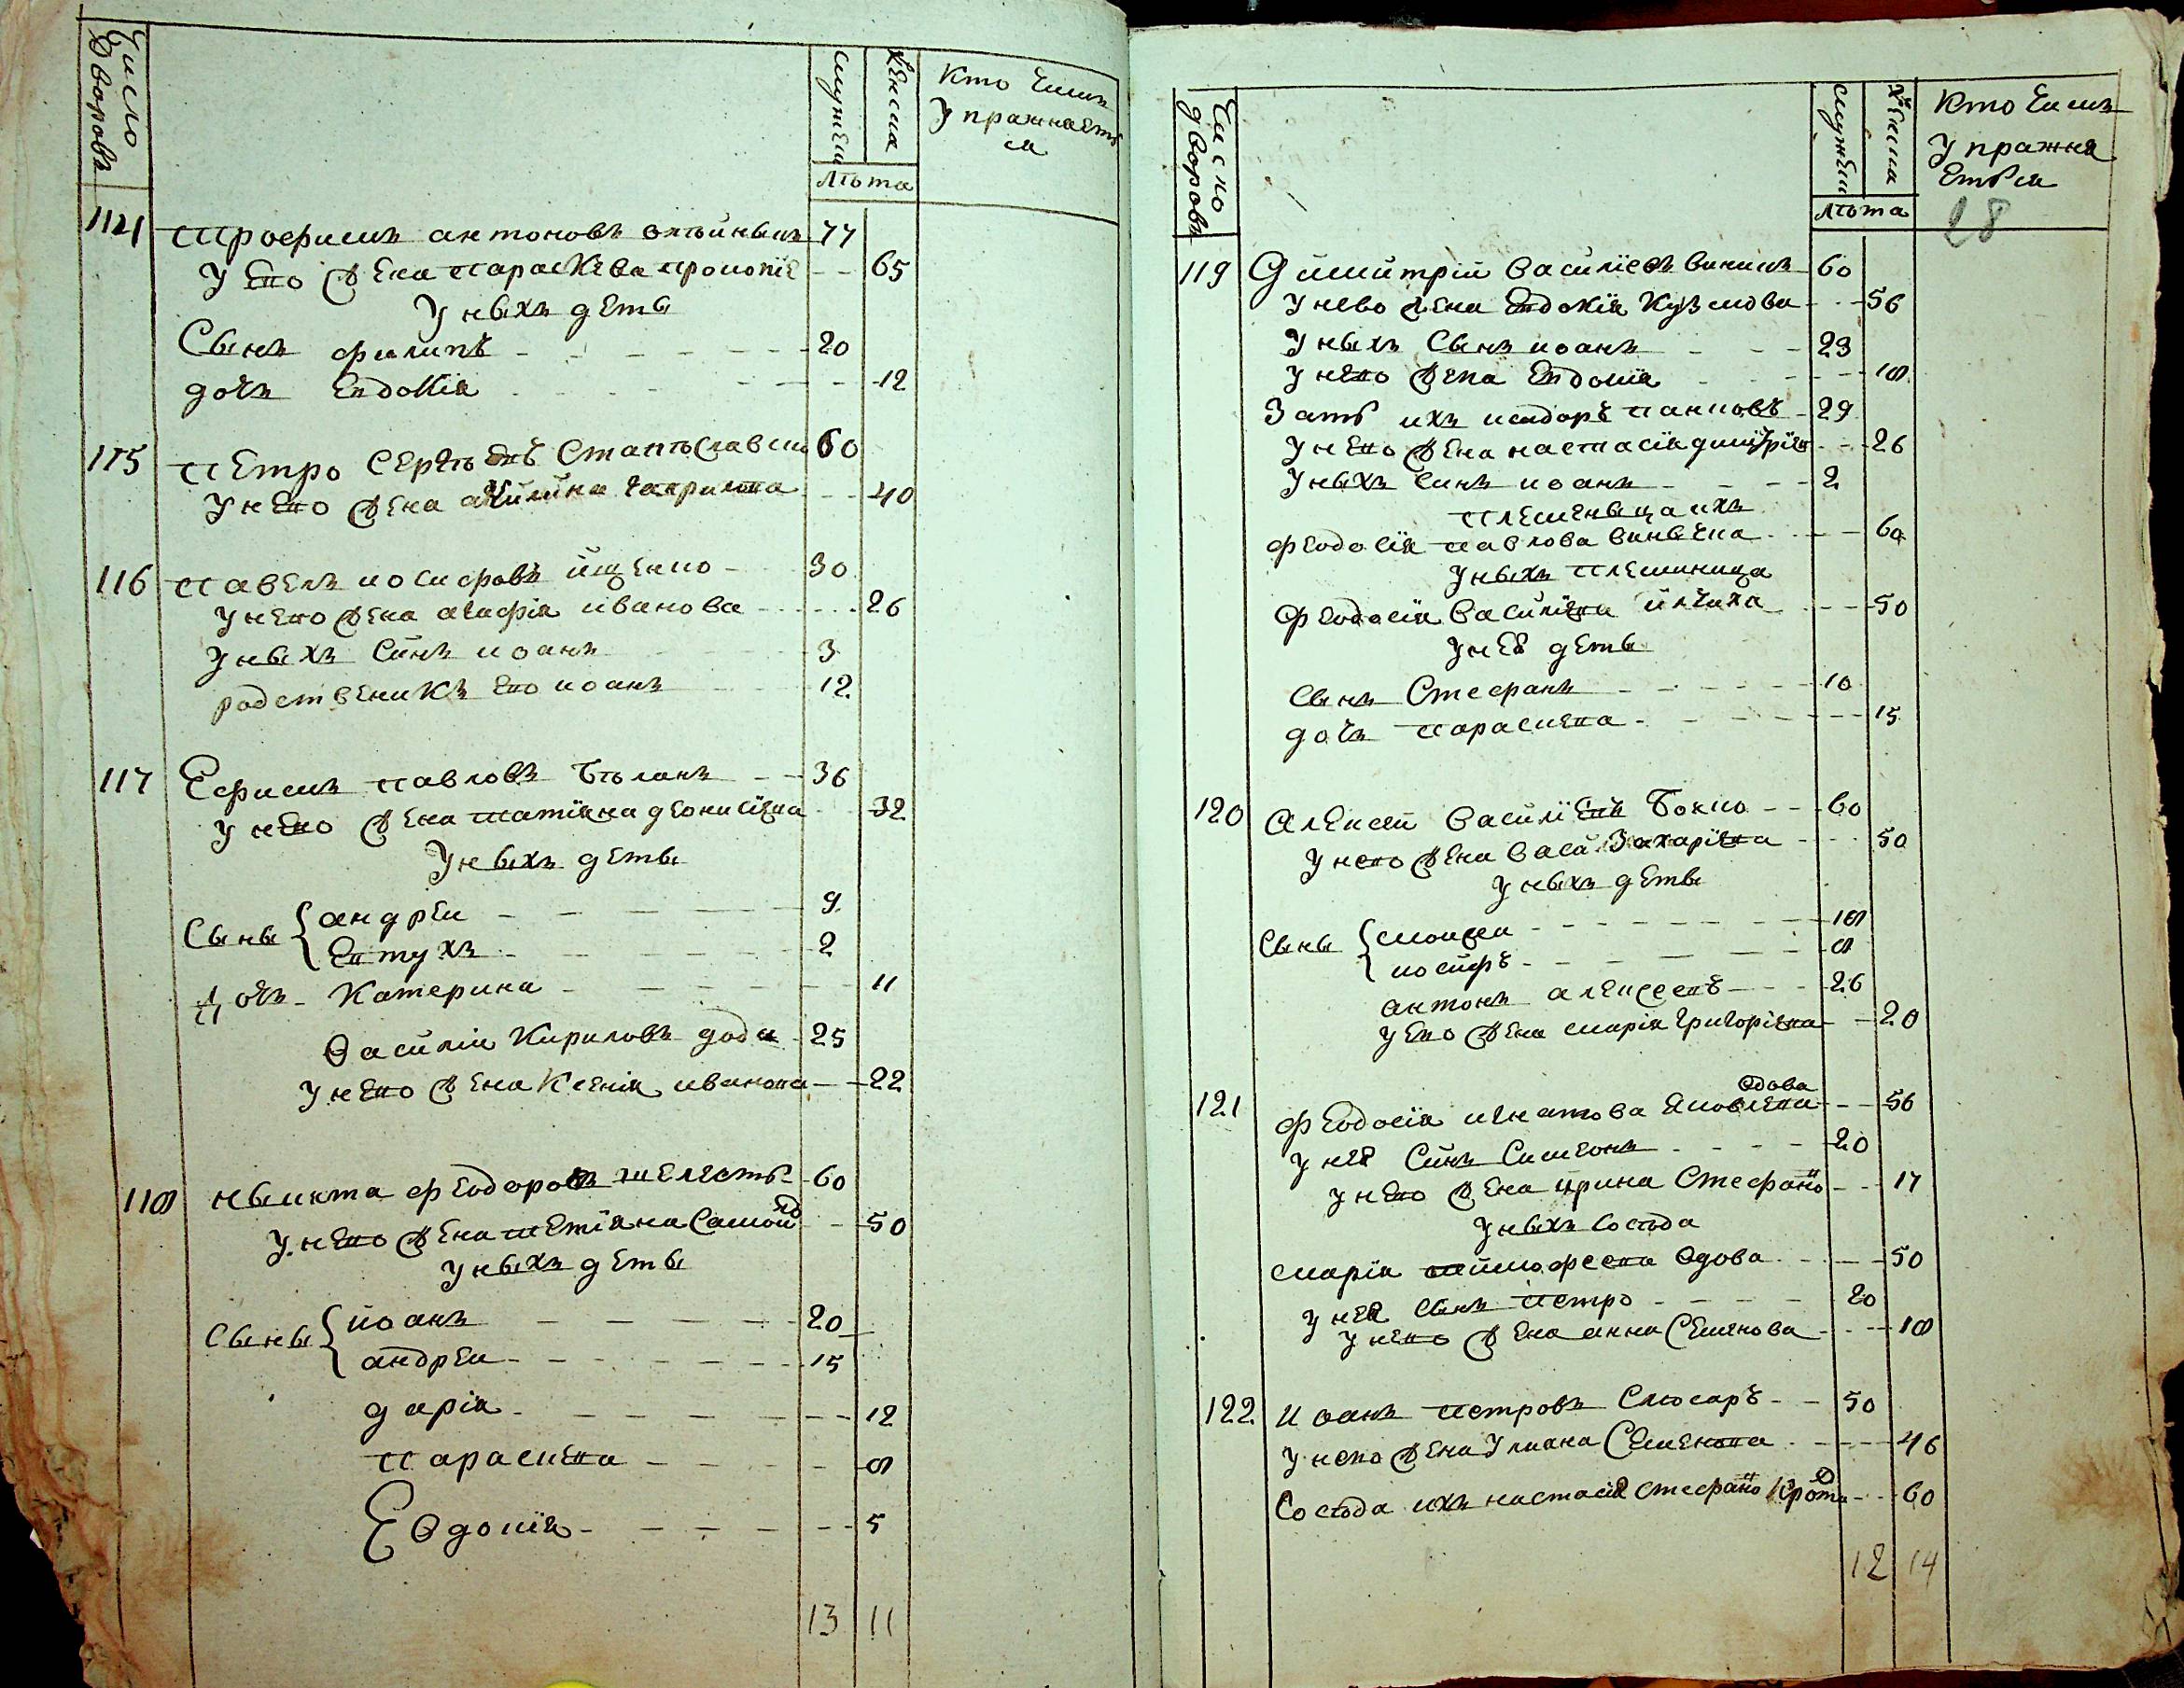 Число Дворовъ
мужеск
женска
лѣта
кто чимъ
упражнаетъ
ся
114 Трофимъ антоновъ 77
У его жена Параскева прокопіе 65
У ныхъ деты
Сынъ филипъ 20
дочъ Евдокія 12
115 Петро Сергѣевъ 60
У него жена акилина гаврилова 40
116 Павелъ иосифовъ ищенко 30
У него жена агафія иванова 26
У ныхъ Синъ иоанъ 3
родственикъ его иоанъ 12
117 Ефимъ павловъ Бѣланъ 36
У него жена татіана деонисіева 32
У ныхъ деты
Сыны { андреи 9
Евтухъ 2
Дочъ Катерина 11
Василіи Кириловъ 25
У него жена Ксенія иванова 22
118 Ныкита феодоровъ шелестъ 60
У него жена тетіана Самойло 50
У ныхъ деты
Сыны { иоанъ 20
андреи 15
дарія 12
параскева 8
Евдокія 5
13 11
Число дворовъ
мужеск
женска
лѣта
кто чимъ
упражня
еться
28
119 Димитрій Василіевъ 60
У нево жена Евдокія Кузмова 56
У ныхъ Сынъ иоанъ 23
У него жена Евдокія 18
Зать ихъ исидоръ панковъ 29
У него жена настасія дмитрія 26
У ныхъ Синъ иоанъ 2
племеныца ихъ
феодосія павлова 60
У ныхъ племиница
феодосія Василіева 50
У неи деты
Сынъ Стефанъ 10
дочъ параскева 15
120 Алексей Василіевъ Бокло 60
У него жена Васа Захаріева 50
У ныхъ деты
Сыны { моисеи 18
иосифъ 8
антонъ алексеевъ 26
У его жена марія григоріева 20
вдова
121 феодосія игнатова Яковлева 56
У неи Синъ Симеонъ 20
У него жена ирина Стефано 17
У ныхъ Сосѣда
марія тимофеева вдова 50
У неи Сынъ петро 20
У него жена анна Семенова 18
122 Иоанъ петровъ Слюсаръ 50
У него жена Улиана Семенова 46
Сосѣда ихъ настасія стефано 60
12 14